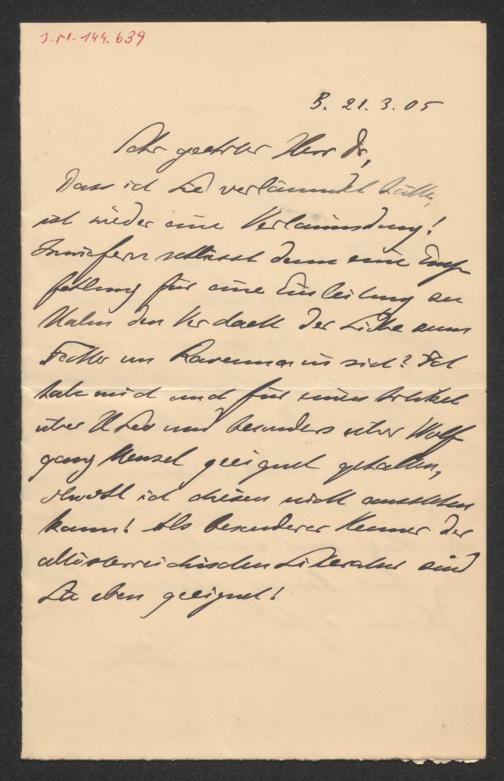 J.N. 144.639
B. 21.3.05
Sehr geehrter Herr Dr,
Dass ich Sie verläumdet hätte,
ist wieder eine Verläumdung!
Inwiefern schliesst denn eine Emp
fehlung für eine Einleitung zu
Halm den Verdacht der Liebe zum
Fechter von Ravenna in sich? Ich
habe mich auch für einen Artikel
über und besonders über Wolf
gang Menzel geeignet gehalten,
obwohl ich diesen nicht ausstehen
kann! Als besonderer Kenner der
altösterreichischen Literatur sind
Sie eben geeignet!